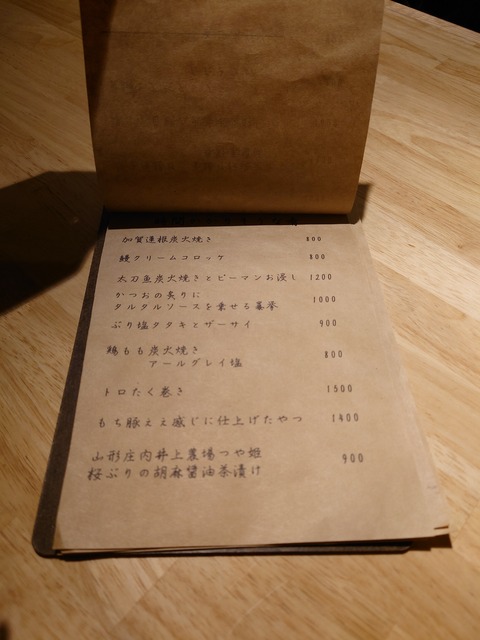 加賀蓮根炭火焼き 800
鰻クリームコロッケ 800
太刀魚炭火焼きとピーマンお浸し 1200
かつおの炙りに
タルタルソースを乗せる暴挙 1000
ぶり塩タタキとザーサイ 900
鶏もも炭火焼き
アールグレイ塩 800
トロたく巻き 1300
もち豚ええ感じに仕上げたやつ 1400
山形庄内井上農場つや姫
桜ぶりの胡麻醤油茶漬け 900